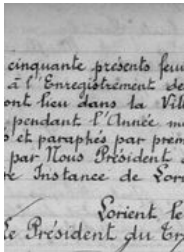 cinquante présents feu
à l'Enregistrement de
ont lieu dans la Vil
pendant l'Année m
et paraphés par prem
par Nous Président
e Instance de Lori
Lorient le
Le Président du Tr